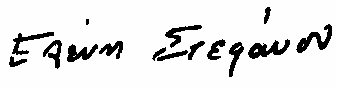 Ελένη Στεφάνου